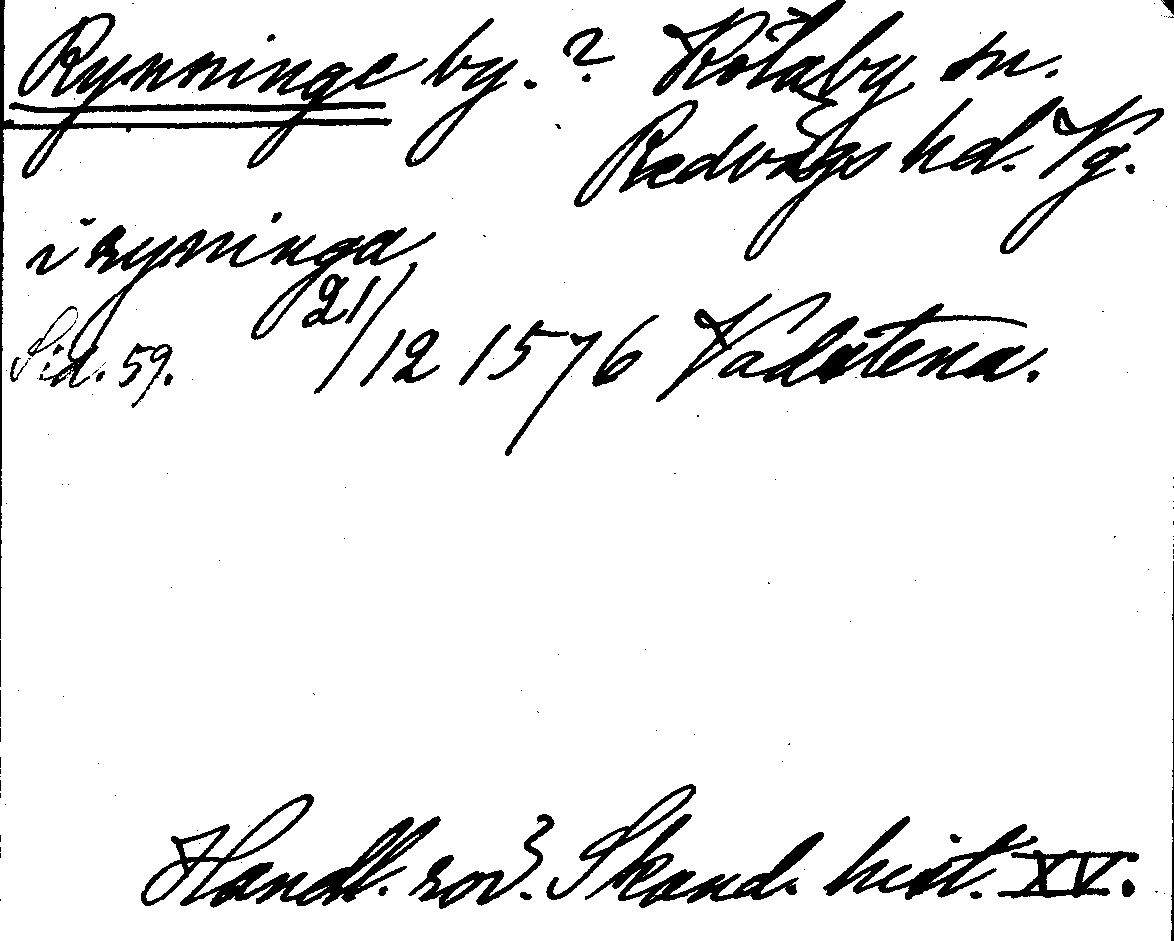 Rynninge by. ? Kölaby sn.
Redvägs hd. Vg.
i ryninga
Sid. 59. 21/12 1576 Vadstena.
Handl. rör. Skand. hist. XV.